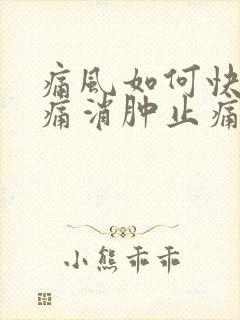 痛风如何快
痛消肿止痛
小熊乖乖